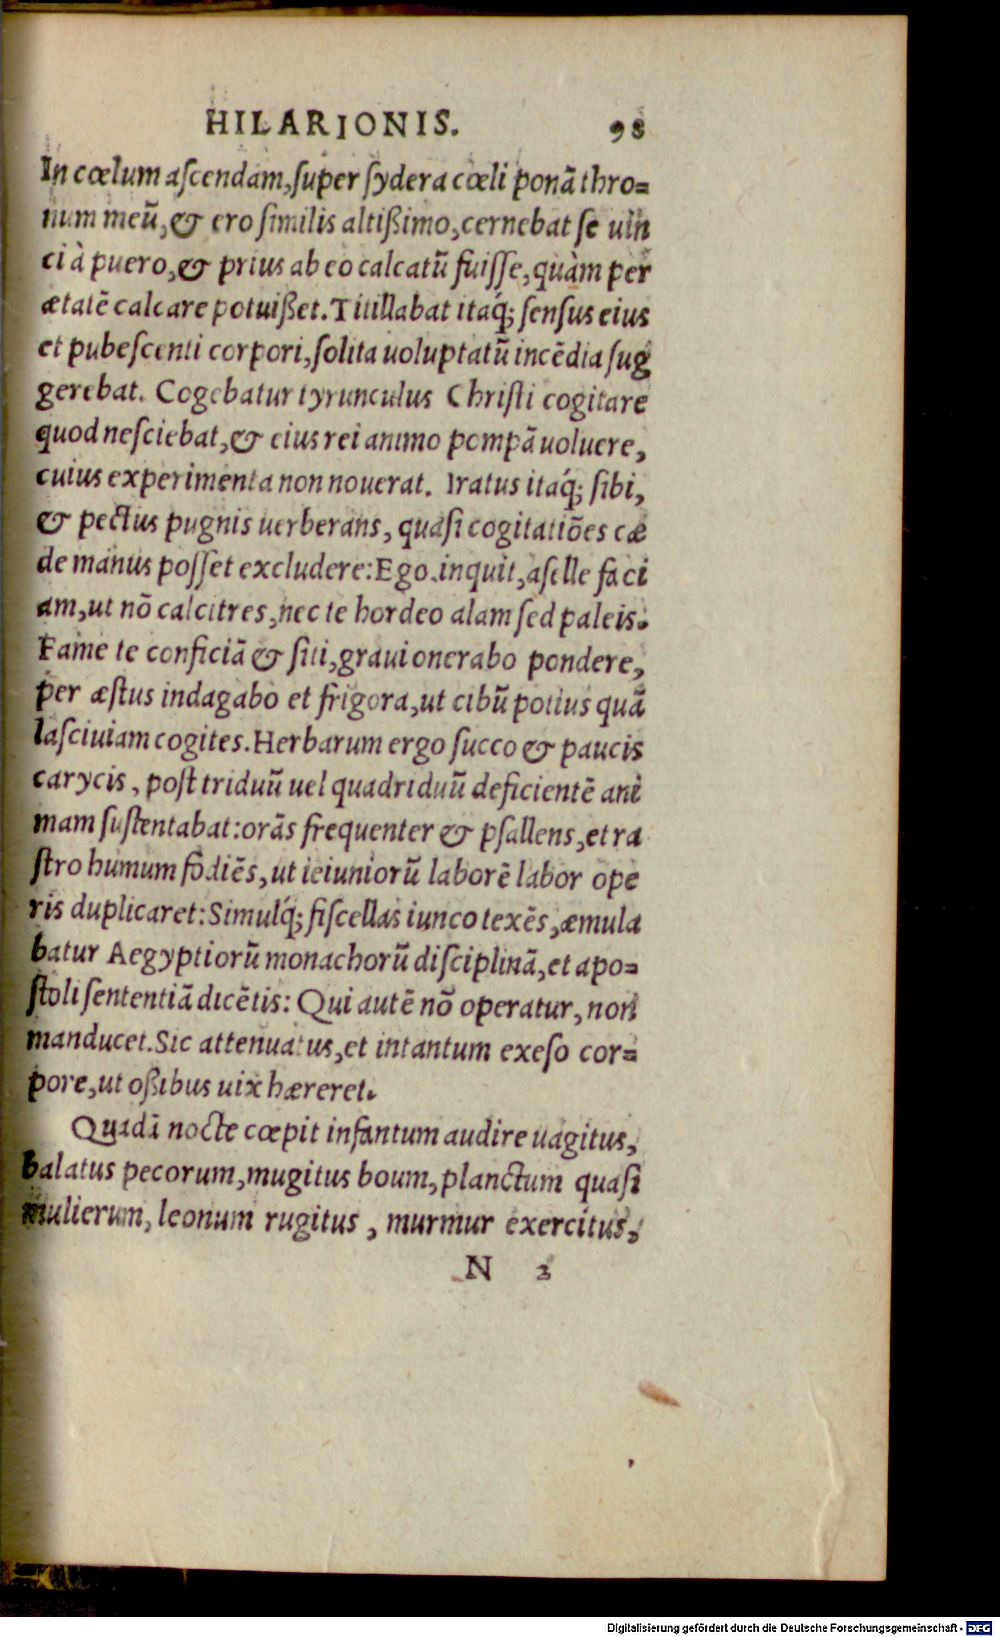 HILARIONIS. 98
In cœlum aſcendam, ſuper ſydera cœli ponā thro=
num meū, & ero ſimilis altißimo, cernebat ſe uin
ci à puero, & prius ab eo calcatū fuiſſe, quàm per
ætatē calcare potuißet. Titillabat itaq́; ſenſus eius
et pubeſcenti corpori, ſolita uoluptatū incēdia ſug
gerebat. Cogebatur tyrunculus Chriſti cogitare
quod neſciebat, & eius rei animo pompā uoluere,
cuius experimenta non nouerat. Iratus itaq́; ſibi,
& pectus pugnis uerberans, quaſi cogitatiōes cæ
de manus poſſet excludere: Ego.inquit, aſelle faci
am, ut nō calcitres, nec te hordeo alam ſed paleis.
Fame te conficiā & ſiti, graui onerabo pondere,
per æſtus indagabo et frigora, ut cibū potius quā
laſciuiam cogites. Herbarum ergo ſucco & paucis
carycis, poſt triduū uel quadriduū deficientē ani
mam ſuſtentabat: orās frequenter & pſallens, et ra
ſtro humum fodiēs, ut ieiuniorū laborē labor ope
ris duplicaret: Simulq́; fiſcellas iunco texēs, æmula
batur Aegyptiorū monachorū diſciplinā, et apo=
ſtoli ſententiā dicētis: Qui autē nō operatur, non
manducet. Sic attenuatus, et intantum exeſo cor=
pore, ut oßibus uix hæreret.
Quadā nocte cœpit infantum audire uagitus,
balatus pecorum, mugitus boum, planctum quaſi
mulierum, leonum rugitus, murmur exercitus,
N 2
Digitalisierung gefördert durch die Deutsche Forschungsgemeinschaft - DFG